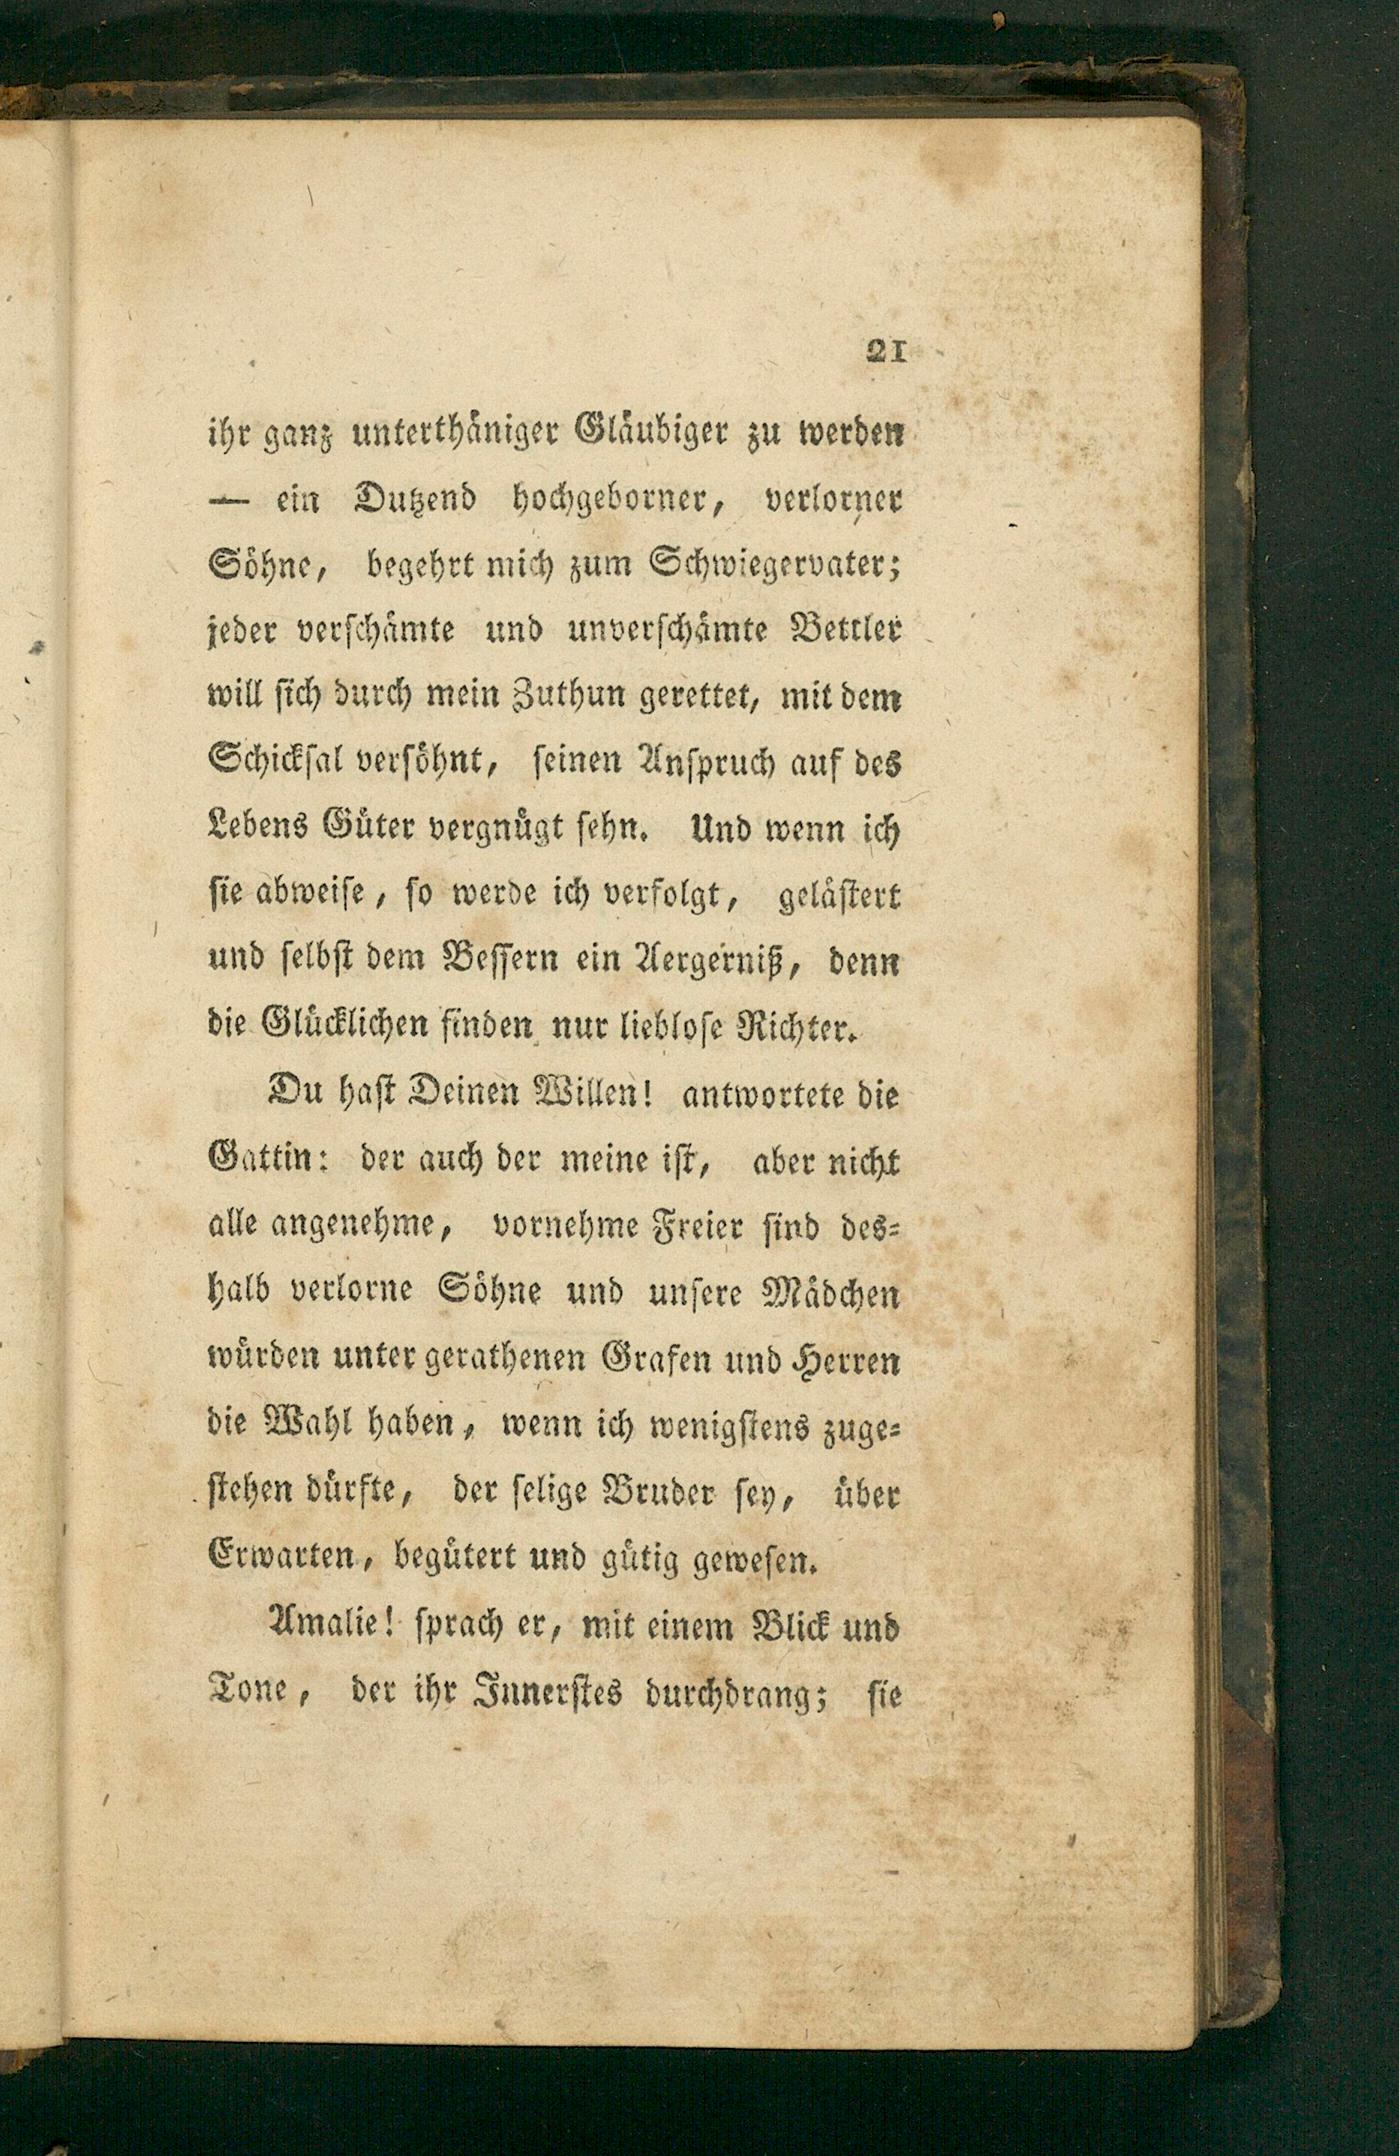 21
ihr ganz unterthäniger Gläubiger zu werden
— ein Dutzend hochgeborner, verlorner
Söhne, begehrt mich zum Schwiegervater;
jeder verschämte und unverschämte Bettler
will sich durch mein Zuthun gerettet, mit dem
Schicksal versöhnt, seinen Anspruch auf des
Lebens Güter vergnügt sehn. Und wenn ich
sie abweise, so werde ich verfolgt, gelästert
und selbst dem Bessern ein Aergerniß, denn
die Glücklichen finden nur lieblose Richter.
Du hast Deinen Willen! antwortete die
Gattin: der auch der meine ist, aber nicht
alle angenehme, vornehme Freier sind des-
halb verlorne Söhne und unsere Mädchen
würden unter gerathenen Grafen und Herren
die Wahl haben, wenn ich wenigstens zuge-
stehen dürfte, der selige Bruder sey, über
Erwarten, begütert und gütig gewesen.
Amalie! sprach er, mit einem Blick und
Tone, der ihr Innerstes durchdrang; sie